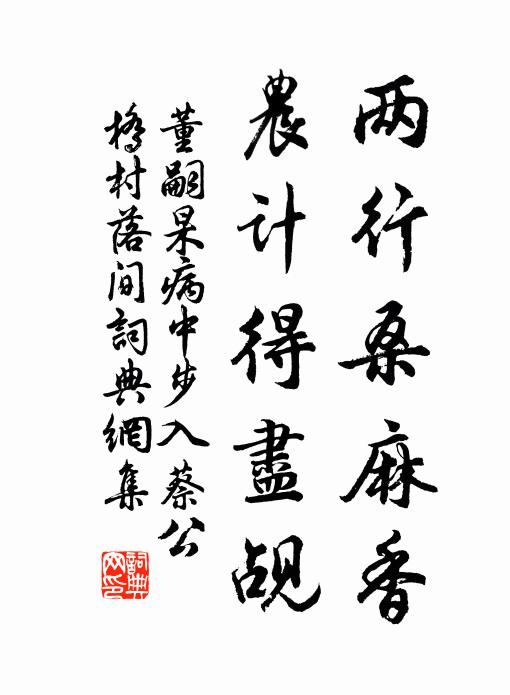 两行桑麻香
農计得盡觇
董嗣杲病中步入蔡公
橋村落间詞典網集
詞典网印